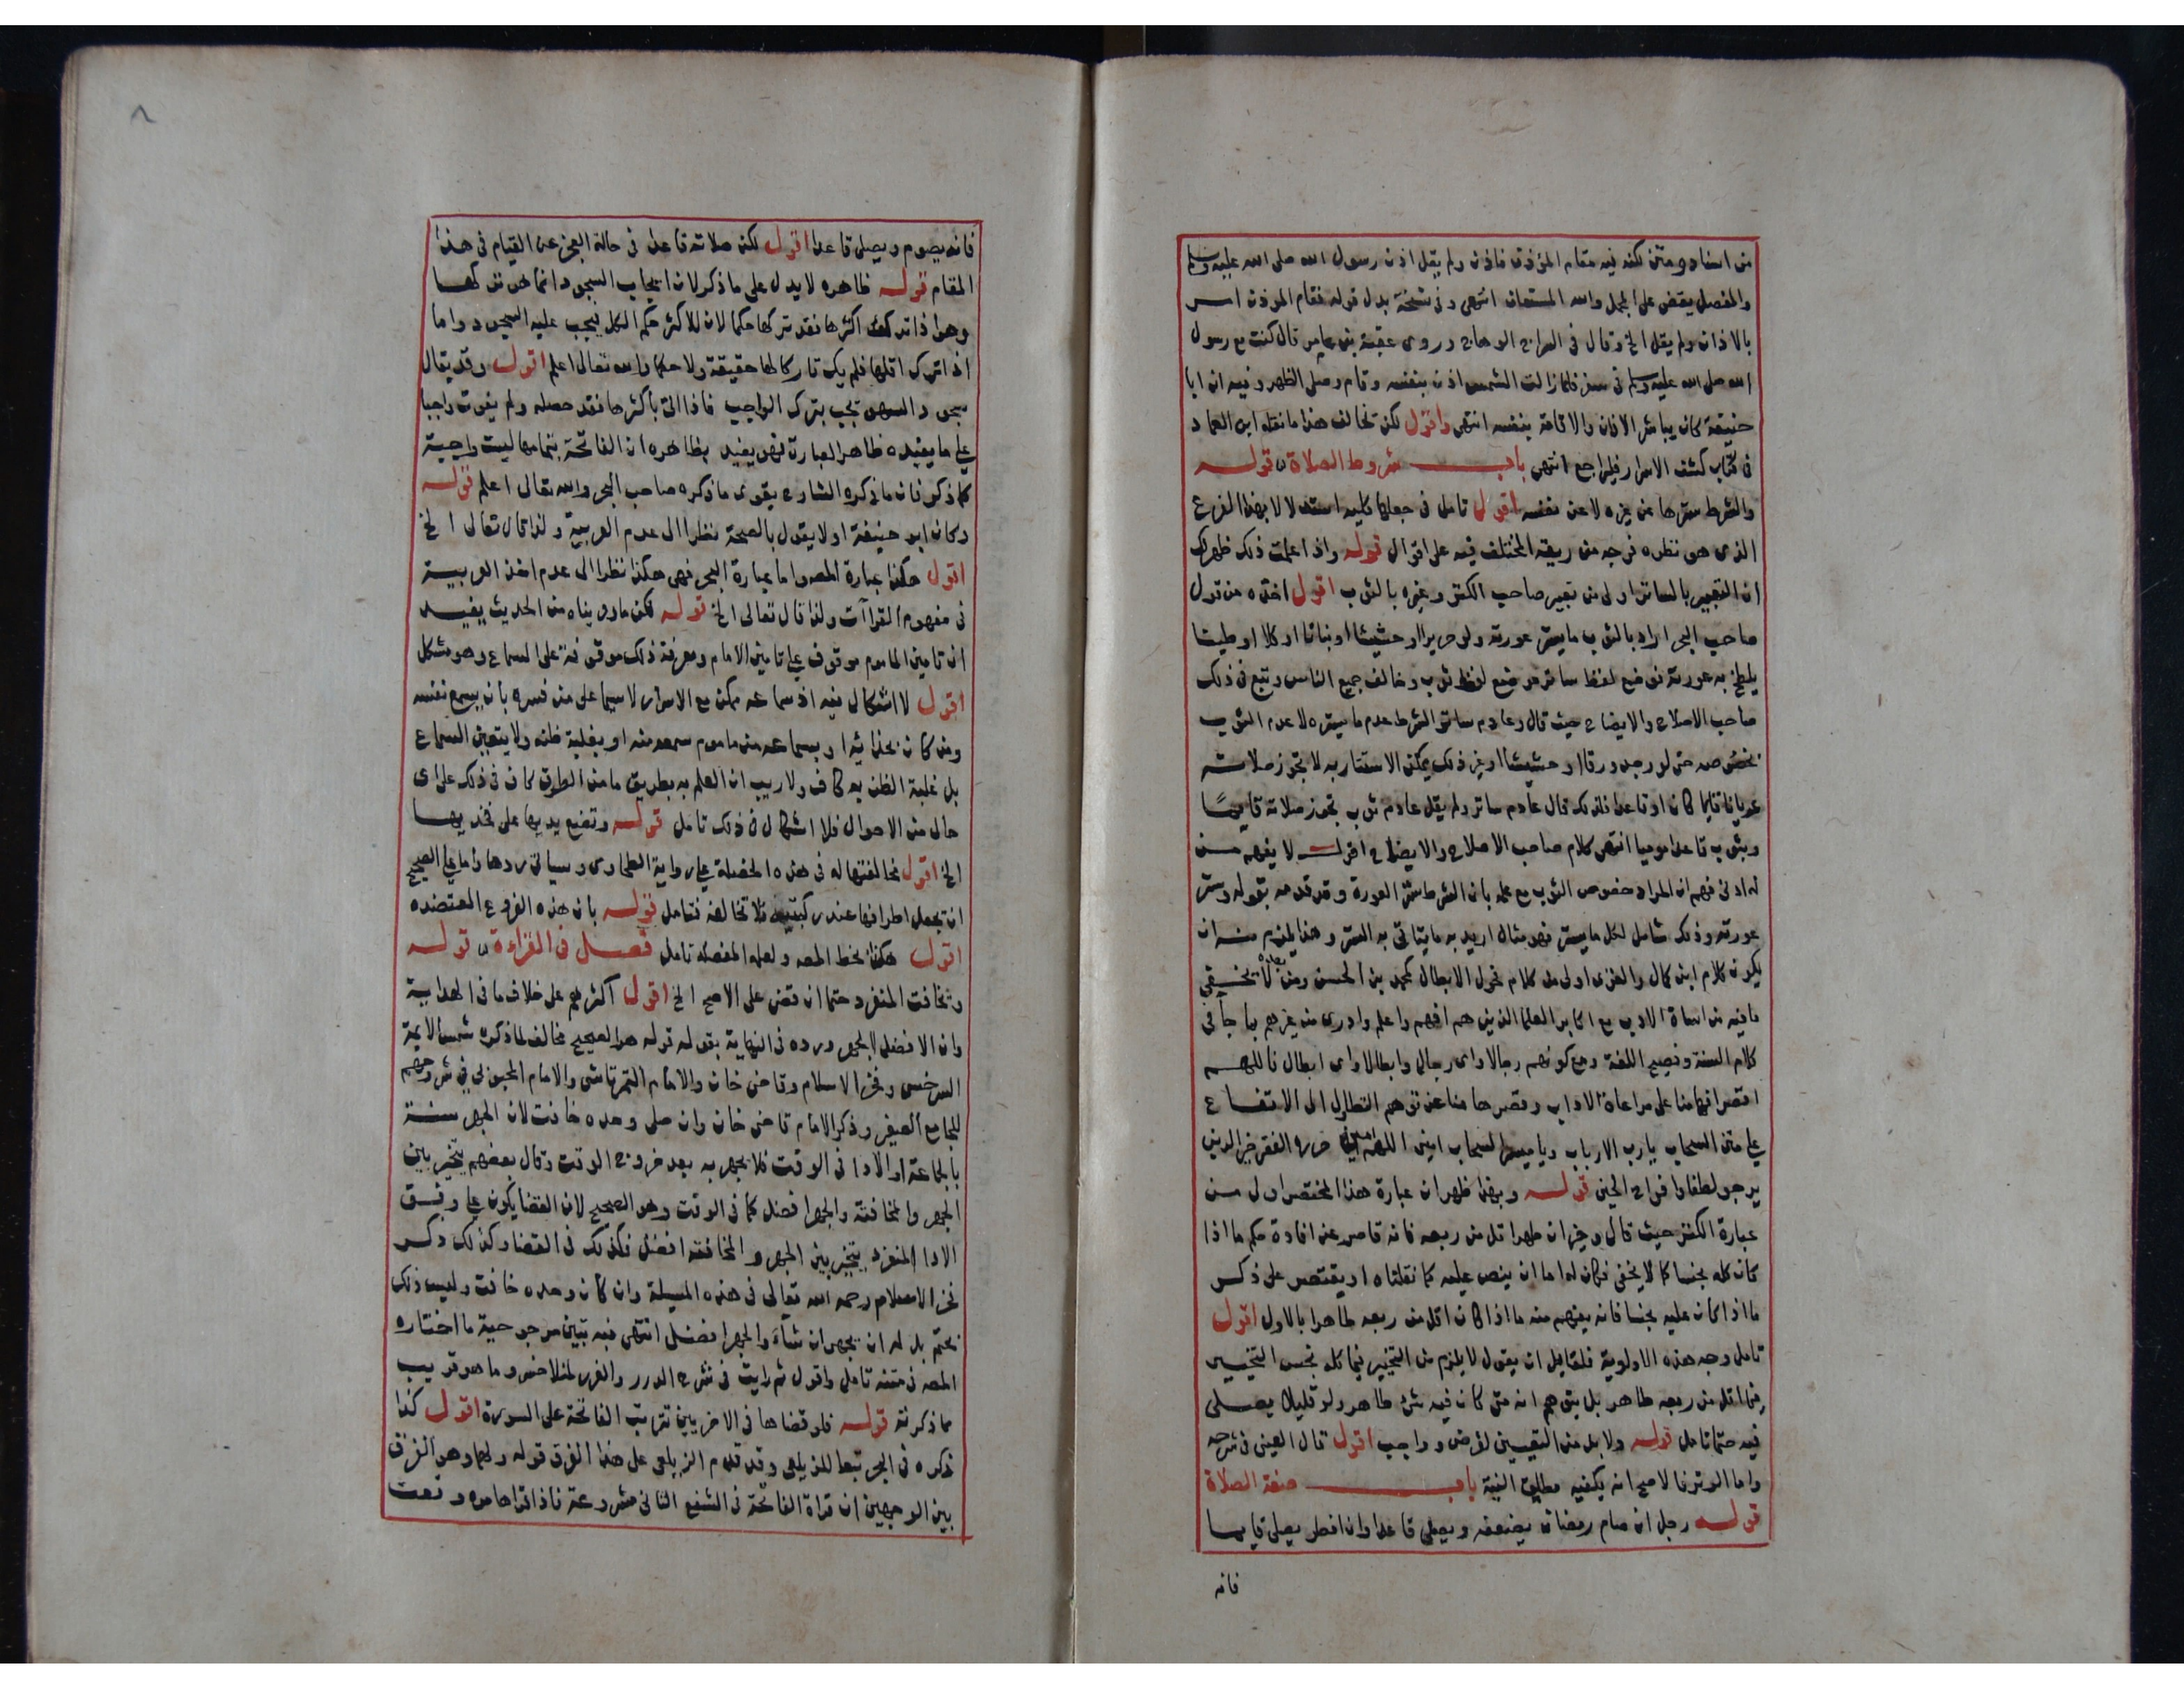 من اسناده ومتن لكنه فيه مقام المؤذن فاذن ولم يقل اذن رسول الله صلى الله عليه وسلم
والمفصل يقضى على المجمل والله المستعان انتهى وفي نسخة بدل قوله فقام الموذن امر
بالاذان ولم يقل الخ وقال في السراج الوهاج وروى عقبة بن عامر قال كنت مع رسول
الله صلى الله عليه وسلم في سفر فلما زالت الشمس اذن بنفسه وقام وصلى الظهر وفيه ان ابا
حنيفة كان يباشر الاذان والاقامة بنفسه انتهى واقول لكن تخالف هذا ما نقله ابن العماد
في كتاب كشف الاسرار فليراجع انتهى باب شروط الصلاة قوله
والشرط سترها عن غيره لا عن نفسه اقول تامل في جعلها كليه استدلالا بهذا الفرع
الذي هو نظره فرجه من ريقه المختلف فيه على اقوال قوله واذا علمت ذلك ظهر لك
ان التعبير بالساتر اولى من تعبير صاحب الكنز وغيره بالثوب اقول اخذه من قول
صاحب البحر اراد بالثوب ما يستر عورته ولو حريرا او حشيشا او نباتا او كلا او طينا
يلطخ به عورته فوضع لفظ ساتر موضع لفظ ثوب وخالف جميع الناس وتبع في ذلك
صاحب الاصلاح والايضاح حيث قال وعادم ساتر الشرط عدم ما يستره لا عدم الثوب
بخصوصه حتى لو وجد ورقا او حشيشا او غير ذلك يمكن الاستتار به لا تجوز صلاته
عريانا قايما كان او قاعدا فلذلك قال عادم ساتر ولم يقل عادم ثوب تجوز صلاته قايما
وبثوب قاعدا موميا انتهى كلام صاحب الاصلاح والايضاح اقول لا يفهم من
له ادنى فهم ان المراد خصوص الثوب مع علمه بان الشرط ستر العورة وقد قدمه بقوله وستر
عورته وذلك شامل لكل ما يستر فهو مثال اريد به ما يتاتى به الستر وهذا يلزم منه ان
يكون كلام ابن كمال والغزى اولى من كلام فحول الابطال كمحمد بن الحسن ومن تلاه لا يخفى
مافيه من اساة الادب مع اكابر العلما الذين هم افهم واعلم وادرى من غيرهم بما جآ في
كلام السنة وفصيح اللغة ومع كونهم رجالا واى رجال وابطالا واى ابطال فاللهم
اقصر افهامنا على مراعاة الاداب وقصرها منا عن توهم التطاول الى الارتفاع
على متن السحاب يارب الارباب ويا مسير السحاب امين اللهم امين حرره الفقير خير الدين
يرجو لطفا وافراح الحين قوله وبهذا ظهر ان عبارة هذا المختصر اولى من
عبارة الكنز حيث قال وخير ان طهر اقل من ربعه فانه قاصر عن افادة حكم ما اذا
كان كله نجسا كما لا يخفى فكان له اما ان ينص عليه كما نقلناه او يقتصر على ذكر
ما اذا كان عليه نجسا فانه يفهم منه ما اذا كان اقل من ربعه طاهرا بالاولى اقول
تامل وجه هذه الاولوية فلقايل ان يقول لا يلزم من التخيير فيما كله نجس التخيير
فيما اقل من ربعه طاهر بل يتوهم انه متى كان فيه شئ طاهر ولو قليلا يصلى
فيه حتما تامل قوله ولا بد من التعيين لفرض وواجب اقول قال العينى في شرحه
واما الوتر فالاصح انه يكفيه مطلق النية باب صفة الصلاة
قوله رجل ان صام رمضان يضعفه ويصلى قاعدا وان افطر يصلى قايما
فانه
٨
فانه يصوم ويصلى قاعدا اقول لكن صلاته قاعدا في حالة العجز عن القيام في هذا
المقام قوله ظاهره لا يدل على ما ذكر لان ايجاب السجود انما هو بتركها
وهو اذا ترك اكثرها فقد تركها حكما لان للاكثر حكم الكل فيجب عليه السجود واما
اذا ترك اقلها فلم يك تاركا لها حقيقة ولا حكما والله تعالى اعلم اقول وقد يقال
سجود السهو يجب بترك الواجب فاذا اتى باكثرها فقد حصله ولم يفوت واجبا
على ما يفيده ظاهر العبارة فهو يفيد بظاهره ان الفاتحة بتمامها ليست واجبة
كما ذكر فان ما ذكره الشارح يقوى ما ذكره صاحب البحر والله تعالى اعلم قوله
وكان ابو حنيفة اولا يقول بالصحة نظرا الى عدم العربية ولذا قال تعالى الخ
اقول هكذا عبارة المصه واما عبارة البحر فهى هكذا نظرا الى عدم اخذ العربية
في مفهوم القرآت ولذا قال تعالى الخ قوله لكن ما رويناه من الحديث يفيد
ان تامين الماموم موقوف على تامين الامام ومعرفة ذلك موقوفة على السماع وهو مشكل
اقول لا اشكال فيه اذ سماعه ممكن مع الاسرار لا سيما على من فسره بان يسمع نفسه
ومن كان بحذائه او بسماعه من ماموم سمعه منه او بغلبة ظنه ولا يتعين السماع
بل غلبة الظن به كاف ولا ريب ان العلم به بطريق ما من الطرق كان في ذلك على اى
حال من الاحوال فلا اشكال في ذلك تامل قوله وتضع يديها على فخذيها
الخ اقول مخالفتها له في هذه الخصلة على رواية الطحاوى وسياتى ردها واما على الصحيح
ان تجعل اطرافها عند ركبتيه فلا تخالفه فتامل قوله بان هذه الفروع المعتضده
اقول هكذا بخط المصه ولعله المفصله تامل فصل في القراءة قوله
وتخافت المنفرد حتما ان قضى على الاصح الخ اقول اكثرهم على خلاف ما في الهداية
وان الافضل الجهر ورده في النهاية بقوله قوله هو الصحيح مخالف لما ذكره شمس الايمة
السرخسى وفخر الاسلام وقاضى خان والامام التمرتاشى والامام المحبوبى في شروحهم
للجامع الصغير وذكر الامام قاضى خان وان صلى وحده خافت لان الجهر سنة
بالجماعة او الادا في الوقت فلا يجهر به بعد خروج الوقت وقال بعضهم يتخير بين
الجهر والمخافتة والجهر افضل كما في الوقت وهو الصحيح لان القضا يكون على وفق
الادا المنفرد يتخير بين الجهر والمخافتة افضل فكذلك في القضا وكذلك ذكر
فخر الاسلام رحمه الله تعالى في هذه المسيلة وان كان وحده خافت وليس ذلك
بحتم بل له ان يجهر ان شآء والجهر افضل انتهى فبه تبين مرجوحية ما اختاره
المصه في متنه تامل واقول ثم رايت في شرح الدرر والغرر لمنلا خسرو ما هو قريب
مما ذكرته قوله فلو قضاها في الاخريين تترتب الفاتحة على السورة اقول كذا
ذكره في البحر تبعا للزيلعى وقد قدم الزيلعى على هذا الفرق قوله ولهما وهو الفرق
بين الوجهين ان قراة الفاتحة في الشفع الثانى مشروعة فاذا قراها مره وقعت